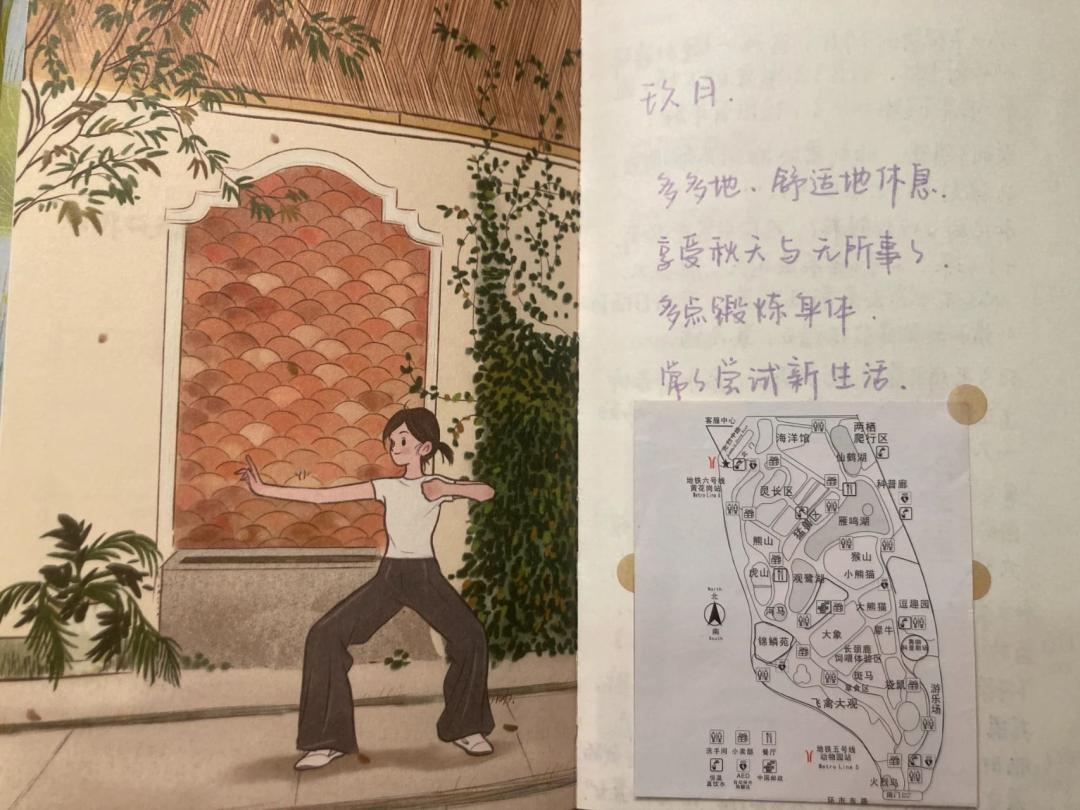 玖月.
多多地、舒适地休息.
享受秋天与无所事々.
多点锻炼身体.
常々尝试新生活.
客服中心
海洋馆
两栖
爬行区
仙鹤湖
北门
地铁六号线
黄花岗站
Metro Line 6
科普廊
灵长区
猛兽区
雁鸣湖
熊山
猴山
虎山
观鹭湖
小熊猫
North
北
南
South
河马
大熊猫
逗趣园
锦鳞苑
大象
犀牛
长颈鹿
饲喂体验区
斑马
草食区
袋鼠
游乐场
飞禽大观
洗手间
小卖部
餐厅
恒温
直饮水
AED
中国邮政
地铁五号线
动物园站
Metro Line 5
火烈鸟
南门
环市东路